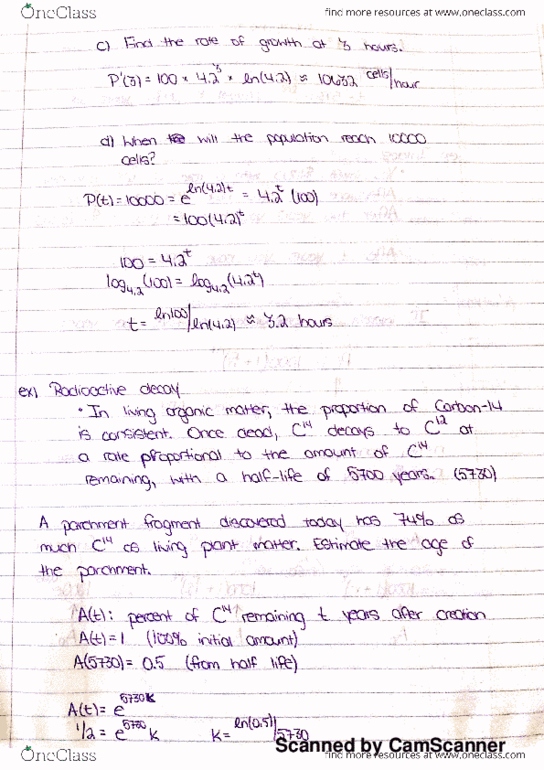 OneClass
find more resources at www.oneclass.com
c) Find the rate of growth at 3 hours.
P'(3) = 100 × 4.2³ × ln(4.2) ≈ 10632 cells/hour
d) When will the population reach 10000
cells?
P(t) = 10000 = e^ln(4.2)t = 4.2^t (100)
= 100(4.2)^t
100 = 4.2^t
log₄.₂(100) = log₄.₂(4.2^t)
t = ln100/ln(4.2) ≈ 3.2 hours
ex) Radioactive decay
• In living organic matter, the proportion of Carbon-14
is consistent. Once dead, C¹⁴ decays to C¹² at
a rate proportional to the amount of C¹⁴
remaining, with a half-life of 5700 years. (5730)
A parchment fragment discovered today has 74% as
much C¹⁴ as living plant matter. Estimate the age of
the parchment.
A(t): percent of C¹⁴ remaining t years after creation
A(t) = 1 (100% initial amount)
A(5730) = 0.5 (from half life)
A(t) = e^5730k
1/2 = e^5730 k k = ln(0.5)/5730
Scanned by CamScanner
OneClass
find more resources at www.oneclass.com